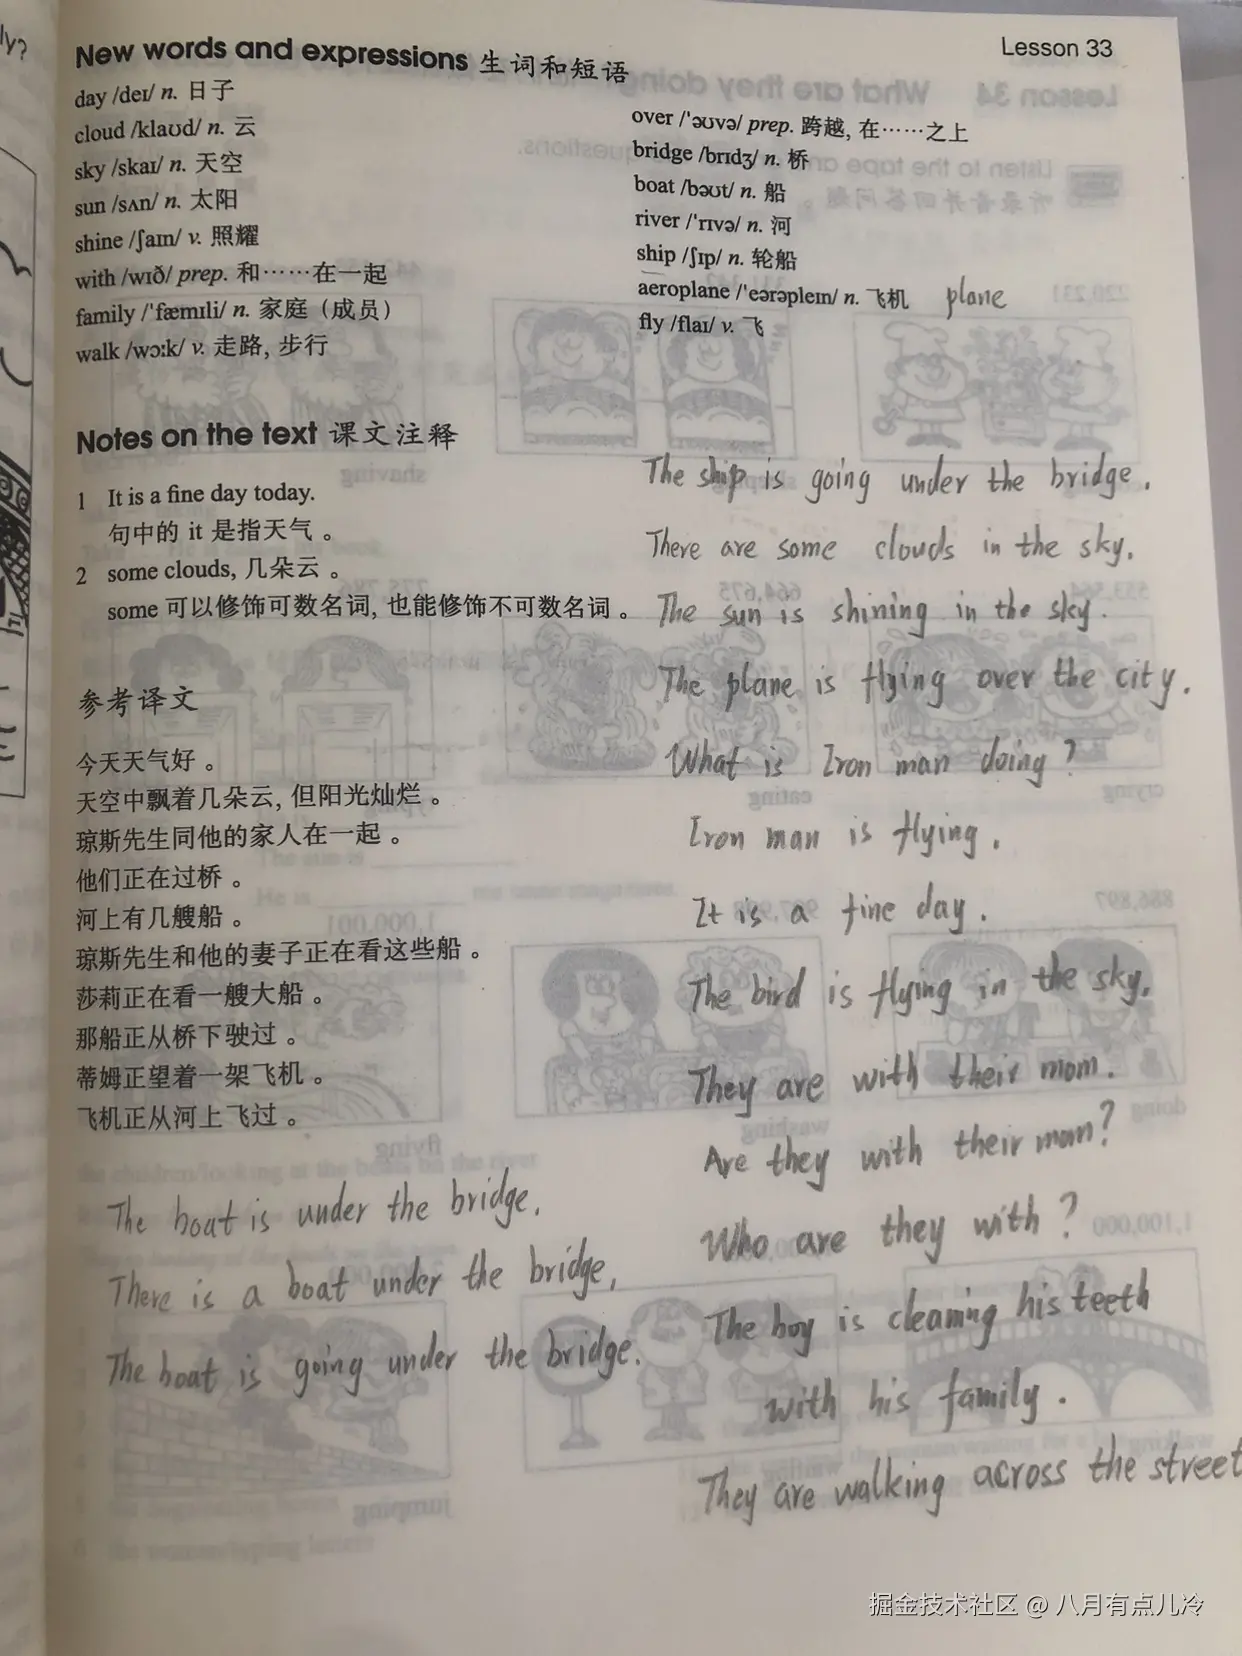 Lesson 33
New words and expressions 生词和短语
day /deɪ/ n. 日子
cloud /klaʊd/ n. 云
sky /skaɪ/ n. 天空
sun /sʌn/ n. 太阳
shine /ʃaɪn/ v. 照耀
with /wɪð/ prep. 和……在一起
family /ˈfæmɪli/ n. 家庭（成员）
walk /wɔːk/ v. 走路, 步行
over /ˈəʊvə/ prep. 跨越, 在……之上
bridge /brɪdʒ/ n. 桥
boat /bəʊt/ n. 船
river /ˈrɪvə/ n. 河
ship /ʃɪp/ n. 轮船
aeroplane /ˈeərəpleɪn/ n. 飞机 plane
fly /flaɪ/ v. 飞
Notes on the text 课文注释
1 It is a fine day today.
句中的 it 是指天气。
2 some clouds, 几朵云。
some 可以修饰可数名词, 也能修饰不可数名词。
参考译文
今天天气好。
天空中飘着几朵云, 但阳光灿烂。
琼斯先生同他的家人在一起。
他们正在过桥。
河上有几艘船。
琼斯先生和他的妻子正在看这些船。
莎莉正在看一艘大船。
那船正从桥下驶过。
蒂姆正望着一架飞机。
飞机正从河上飞过。
The boat is under the bridge.
There is a boat under the bridge.
The boat is going under the bridge.
The ship is going under the bridge.
There are some clouds in the sky.
The sun is shining in the sky.
The plane is flying over the city.
What is Iron man doing?
Iron man is flying.
It is a fine day.
The bird is flying in the sky.
They are with their mom.
Are they with their mom?
Who are they with?
The boy is cleaning his teeth
with his family.
They are walking across the street
掘金技术社区 @ 八月有点儿冷